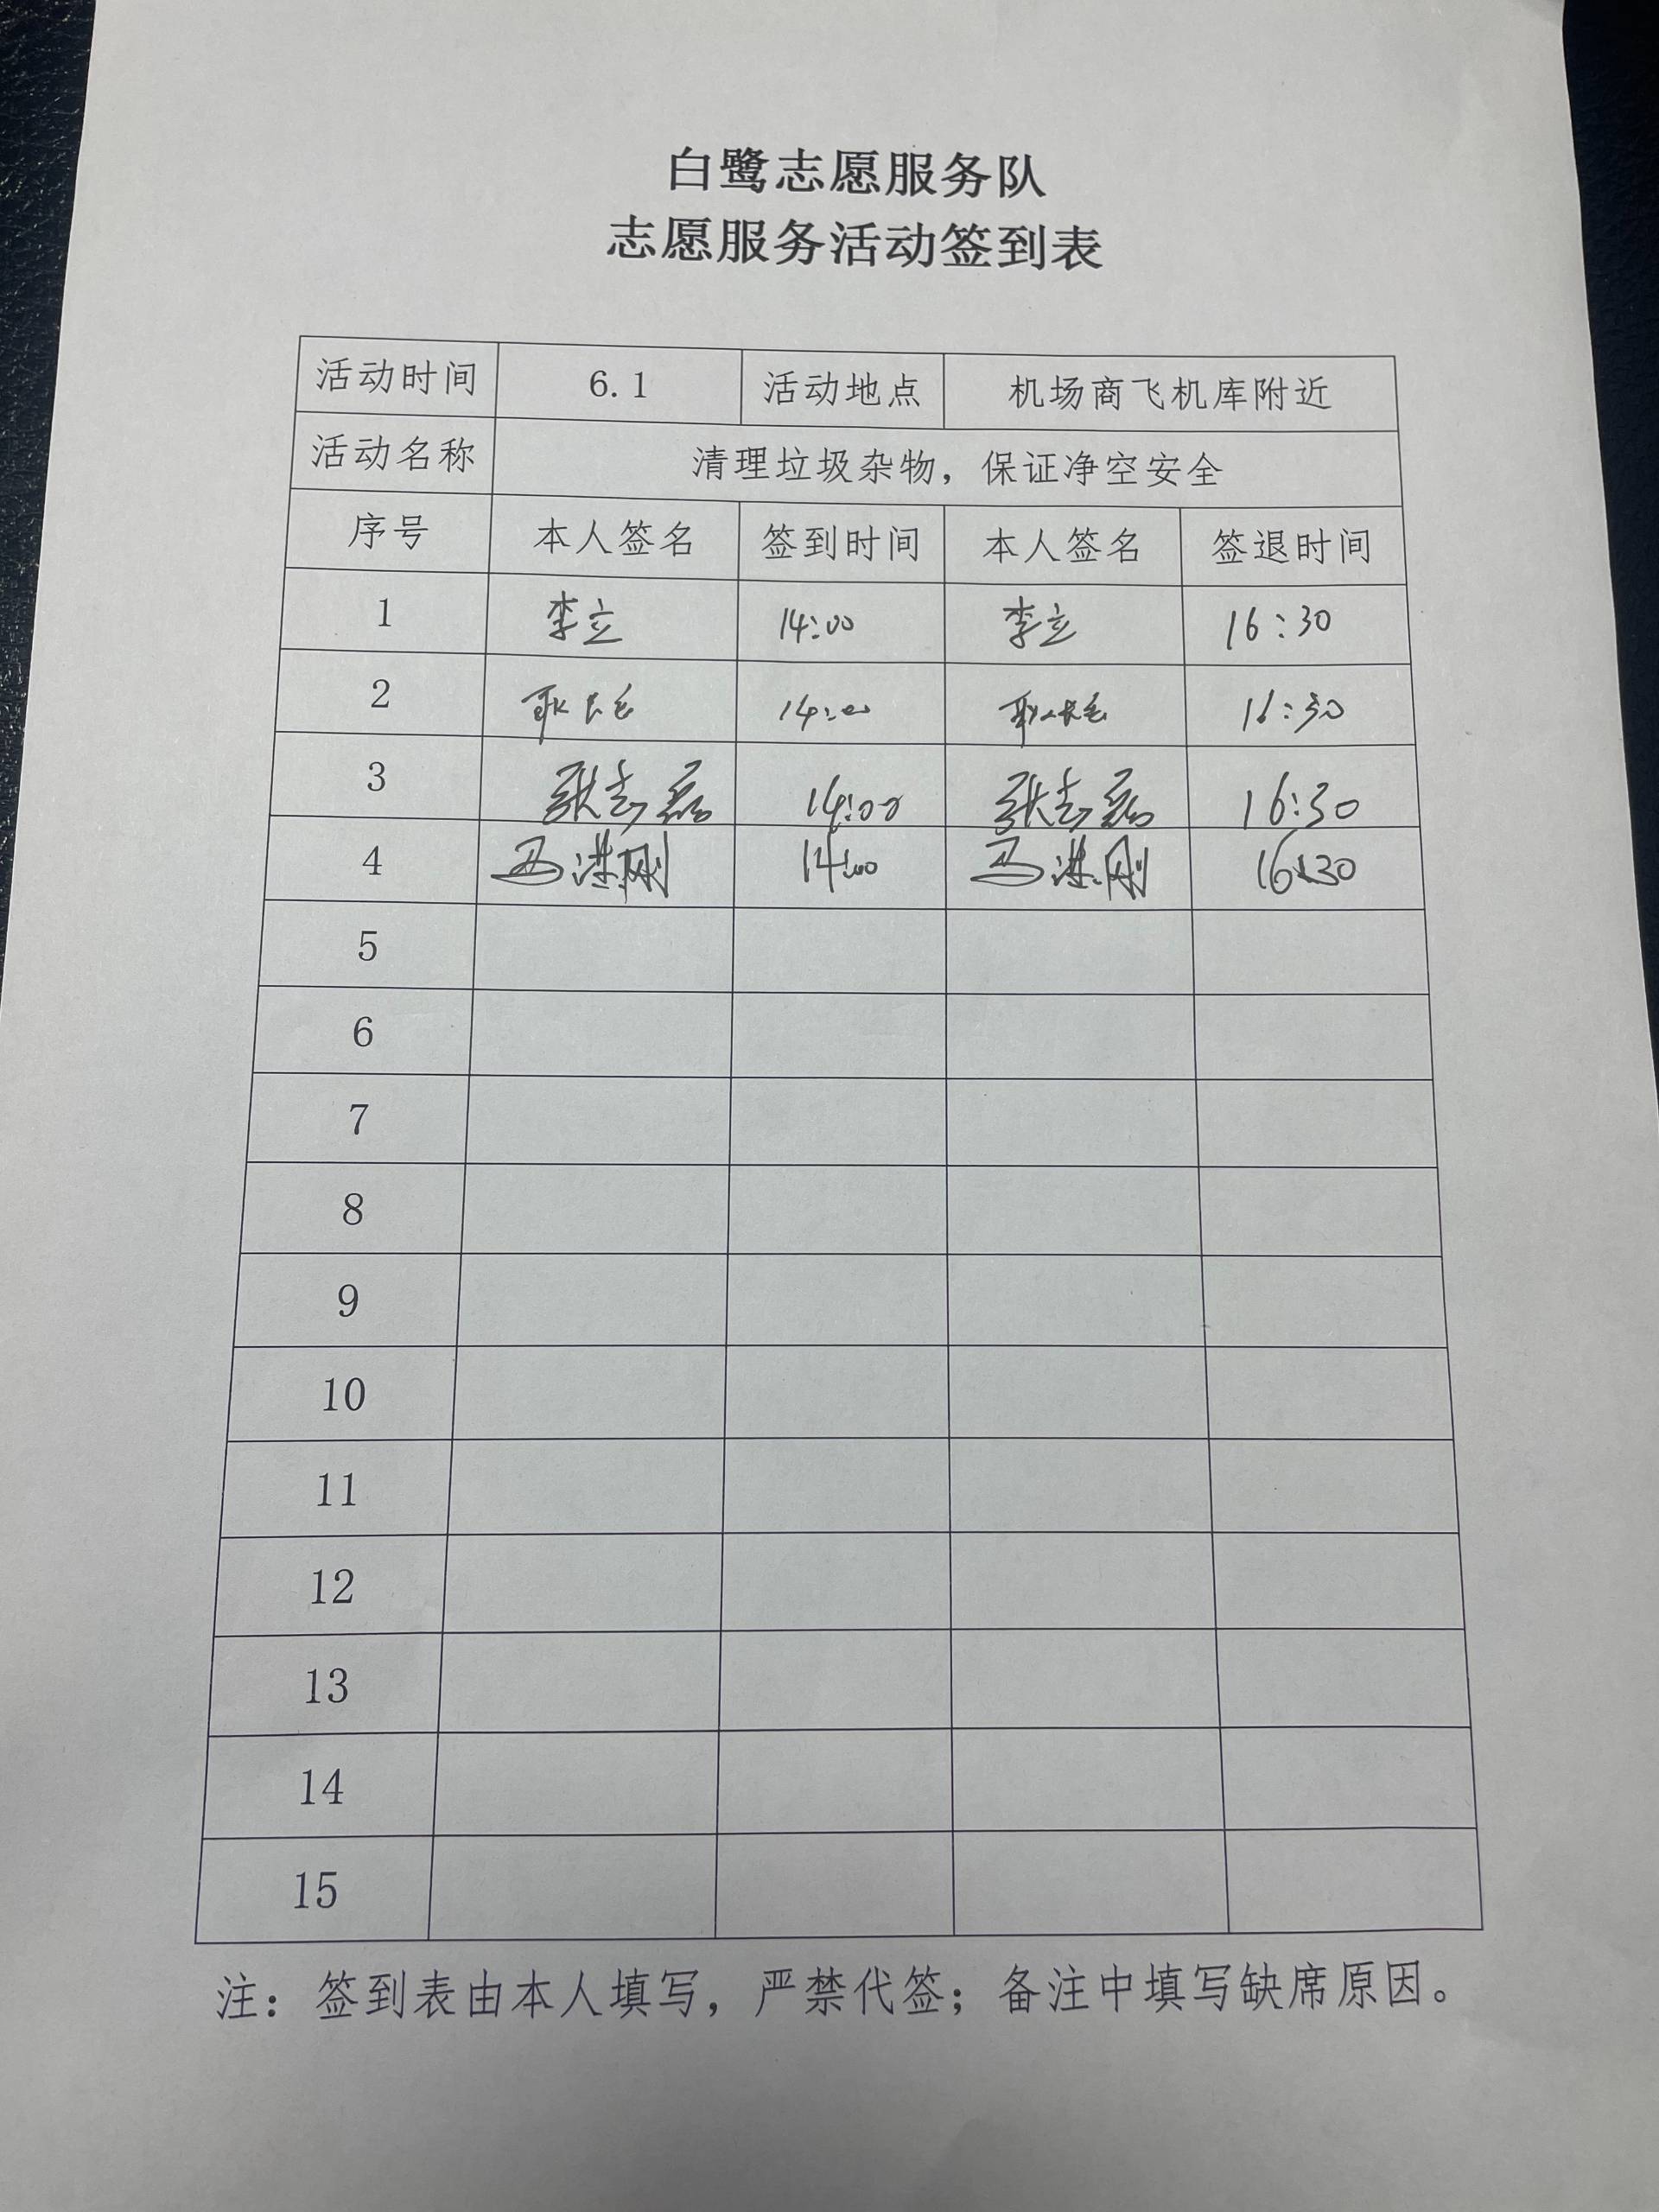 白鹭志愿服务队
志愿服务活动签到表
活动时间 6.1 活动地点 机场商飞机库附近
活动名称 清理垃圾杂物，保证净空安全
序号 本人签名 签到时间 本人签名 签退时间
1 李立 14:00 李立 16:30
2 14:00 16:30
3 张志磊 14:00 张志磊 16:30
4 马洪刚 14:00 马洪刚 16:30
5
6
7
8
9
10
11
12
13
14
15
注：签到表由本人填写，严禁代签；备注中填写缺席原因。